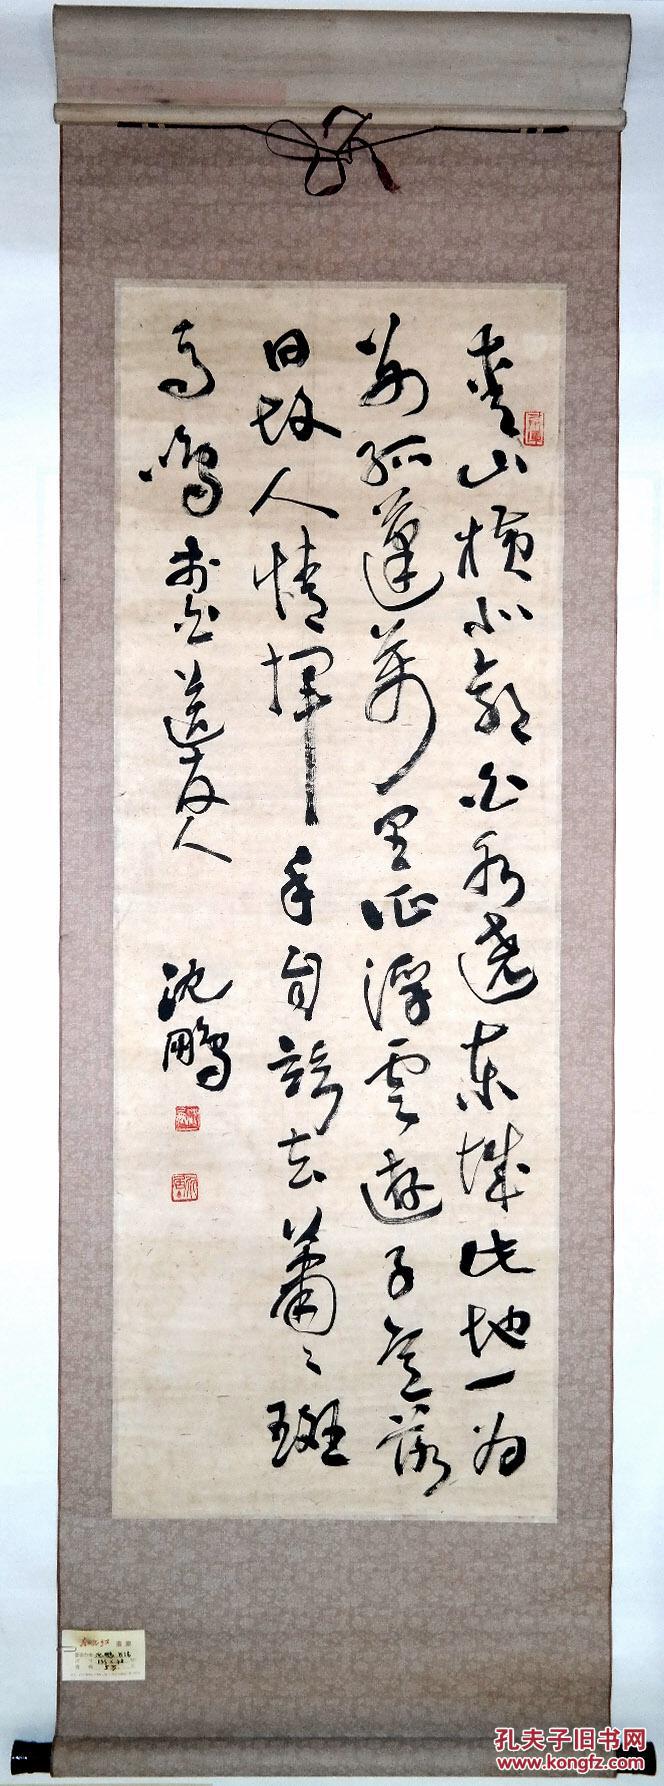 青山横北郭白水遶東城此地一为
别孤蓬萬里征浮雲遊子意落
日故人情揮手自兹去蕭〻斑
马鳴 李白送友人
沈鹏
沈鹏
孔夫子旧书网
www.kongfz.com